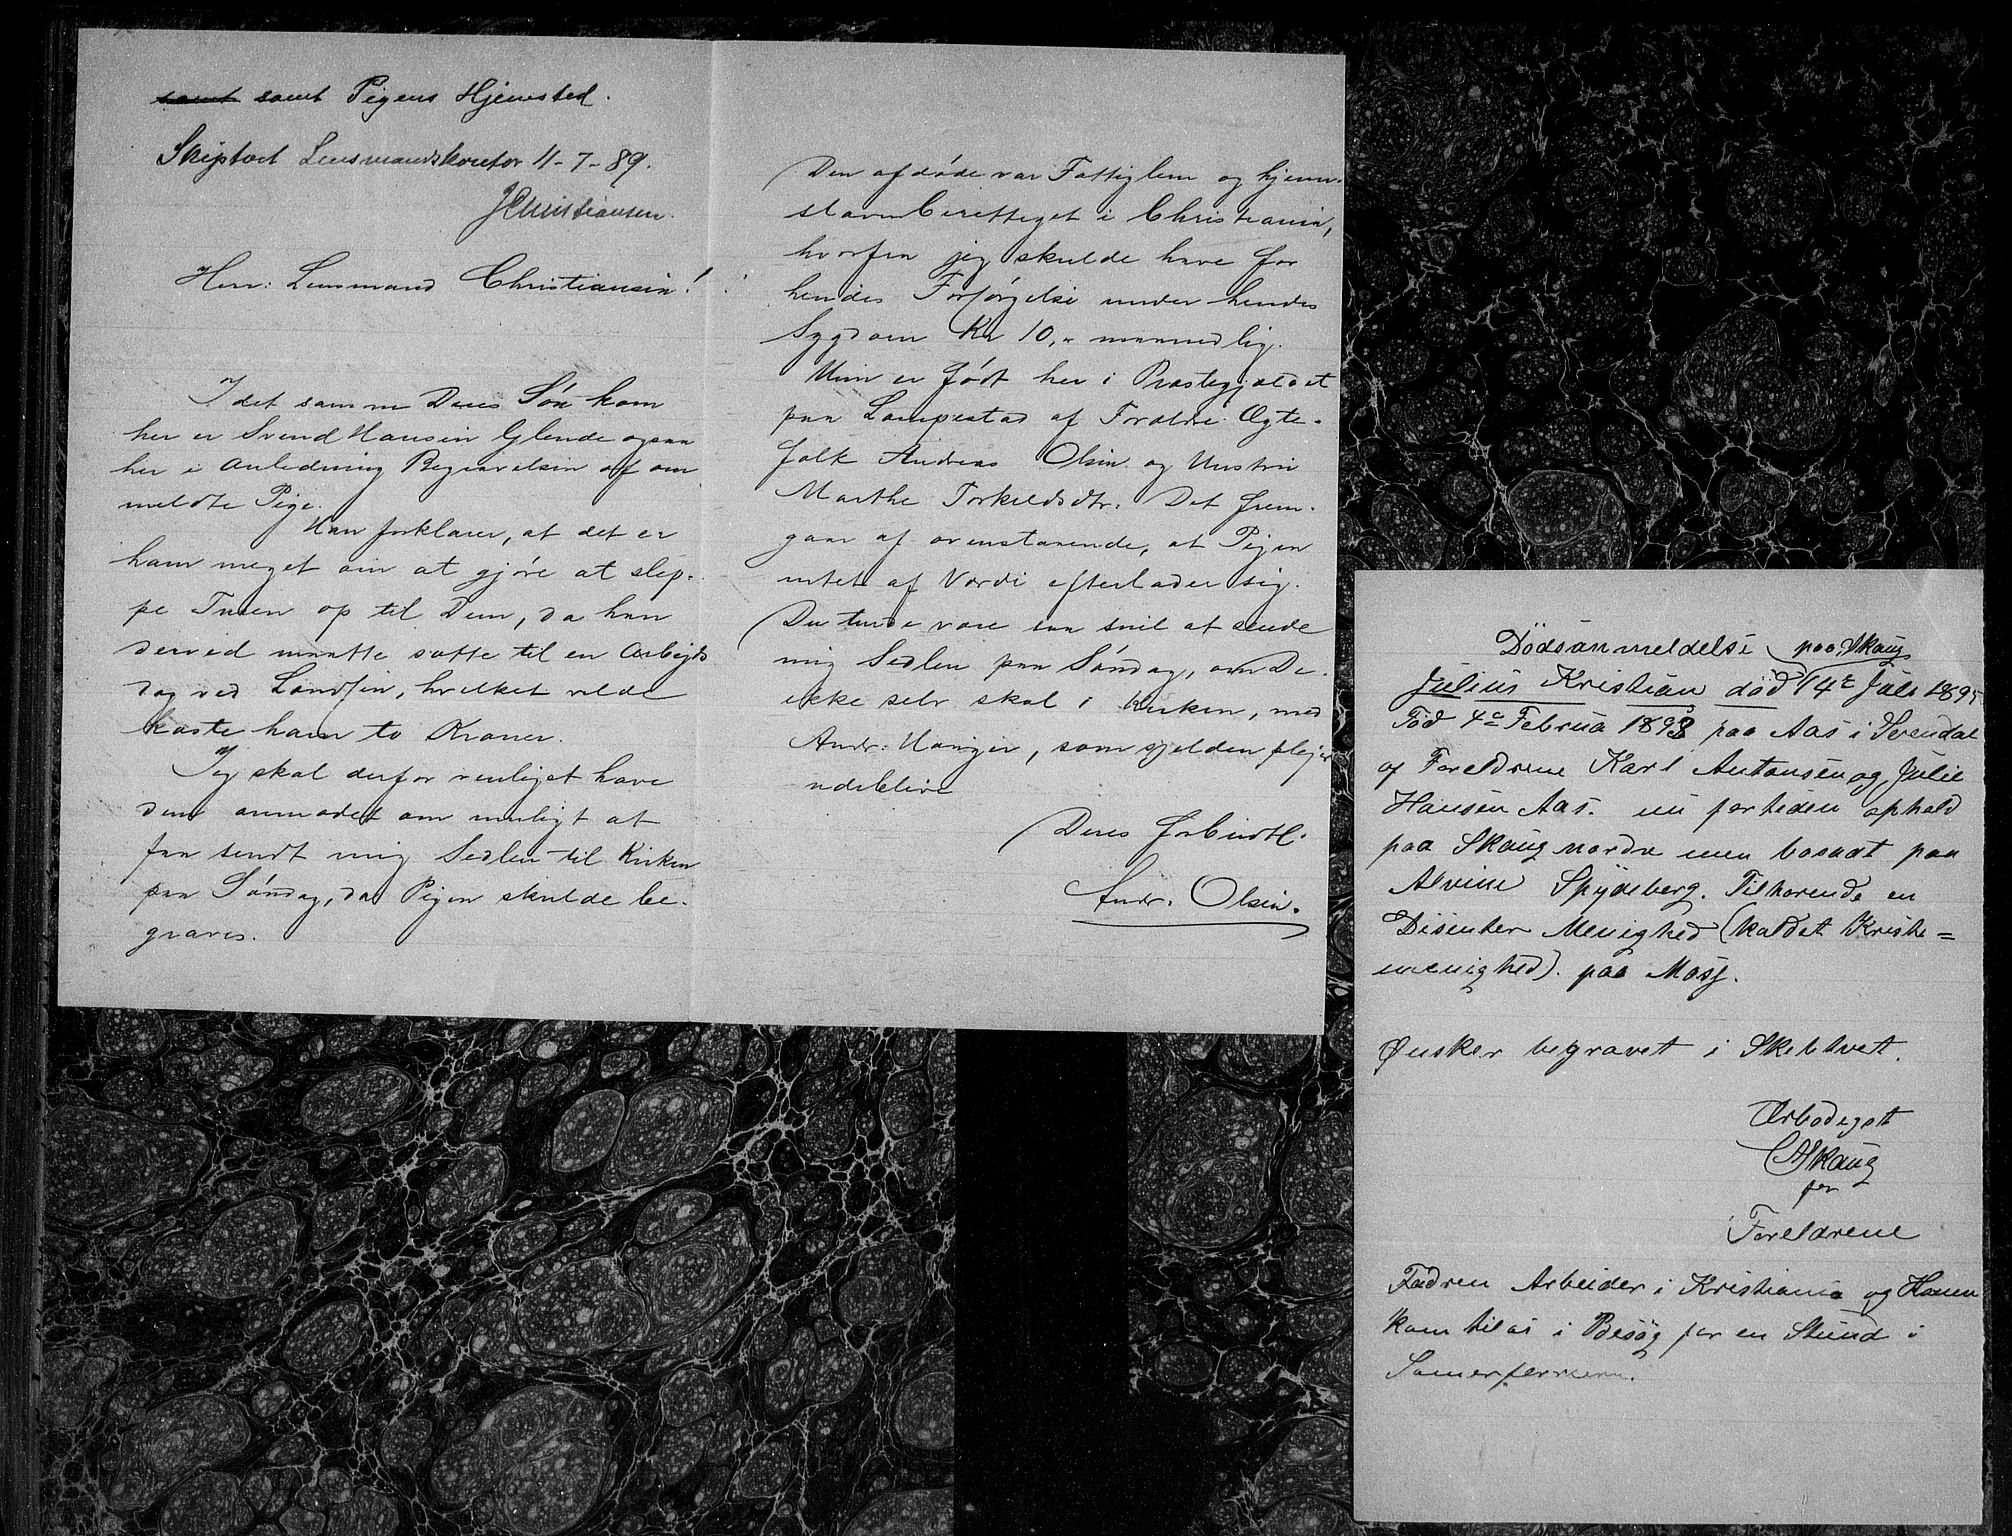 samt samt Pigens Hjemsted.
Skiptvet Lensmandskontor 11-7-89.
JChristiansen.
Herr: Lensmand Christiansen!
I det samme Deres Søn kom
her er Svend Hansen Glende ogsaa
her i Anledning Begravelsen af om
meldte Pige.
Han forklarer, at det er
ham meget om at gjøre at slip-
pe Turen op til Dem, da han
derved maatte sætte til en Arbejds
dag ved Landsen, hvilket vilde
koste ham to Kroner.
Jeg skal derfor venligst have
dem anmodet om muligt at
faa sendt mig Sedlen til Kirken
paa Søndag, da Pigen skulde be-
graves.
Den afdøde var Fattiglem og hjem-
stavnberettiget i Christiania,
hvorfra jeg skulde have for
hendes Forsørgelse under hendes
Sygdom Kr 10,- maanedlig.
Hun er født her i Præstegjældet
paa Lampestad af Forældre Ægte-
folk Andreas Olsen og Hustru
Marthe Torkeldsdtr. Det frem-
gaar af ovenstaaende, at Pigen
intet af Værdi efterlader sig.
De turde være saa snil at sende
mig Sedlen paa Søndag, om De
ikke selv skal i Kirken, med
Andr. Haugen, som sjelden plejer
udeblive
Deres forbindtl.
Andr. Olsen.
Dødsanmeldelse paa Skaug
Julius Kristian død 14de Juli 1895
Fød 4de Februa 1893 paa Aas i Svendal
af Foreldrene Karl Antonsen og Julie
Hansen Aas. nu fortiden ophold
paa Skaug nordre men bosadt paa
Alvine Spydeberg. Tilhørende en
Disenter Menighed (kaldet Kriste=
menighed). paa Moss.
Ønsker begravet i Skebtvet.
Ærbødigst
CASkaug
for
Foreldrene
Fadren Arbeider i Kristiania og Konen
kom til os i Besøg for en Stund i
Somerferierne.